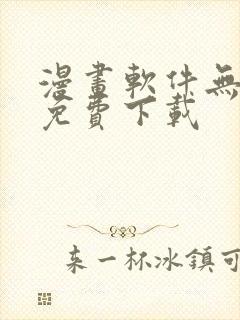 漫畫軟件無
免費下載
来一杯冰鎮可